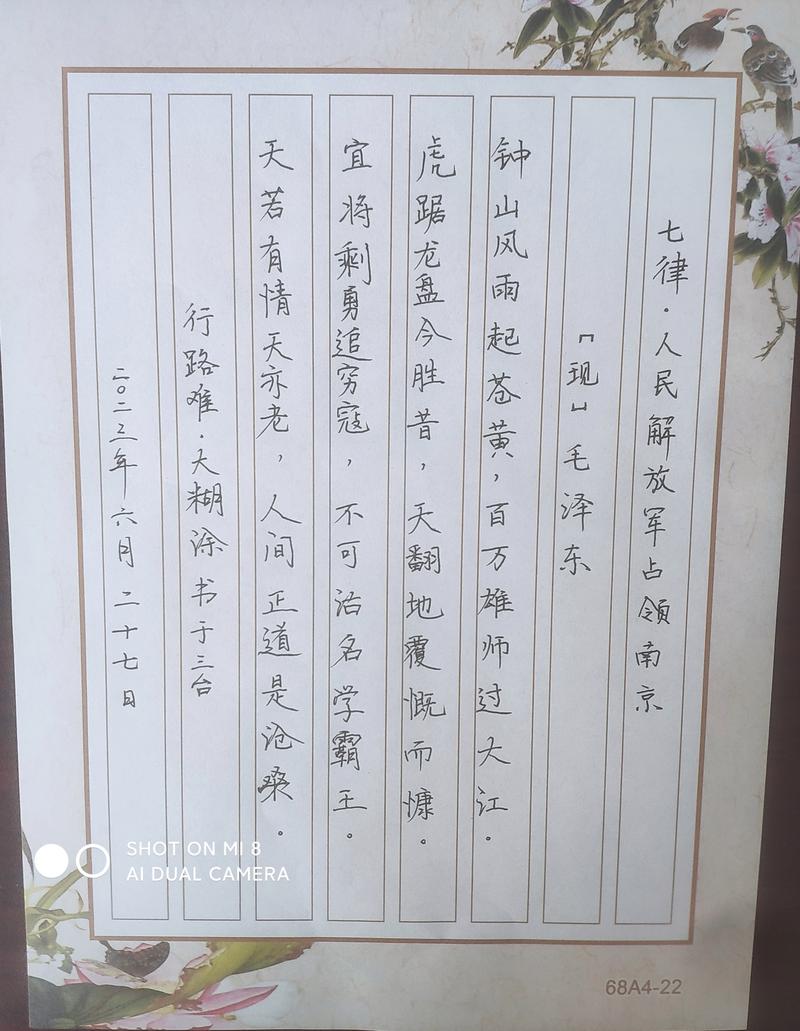 七律·人民解放军占领南京
「现」毛泽东
钟山风雨起苍黄，百万雄师过大江。
虎踞龙盘今胜昔，天翻地覆慨而慷。
宜将剩勇追穷寇，不可沽名学霸王。
天若有情天亦老，人间正道是沧桑。
行路难·大糊涂书于三台
二〇二三年六月二十七日
SHOT ON MI 8
AI DUAL CAMERA
68A4-22